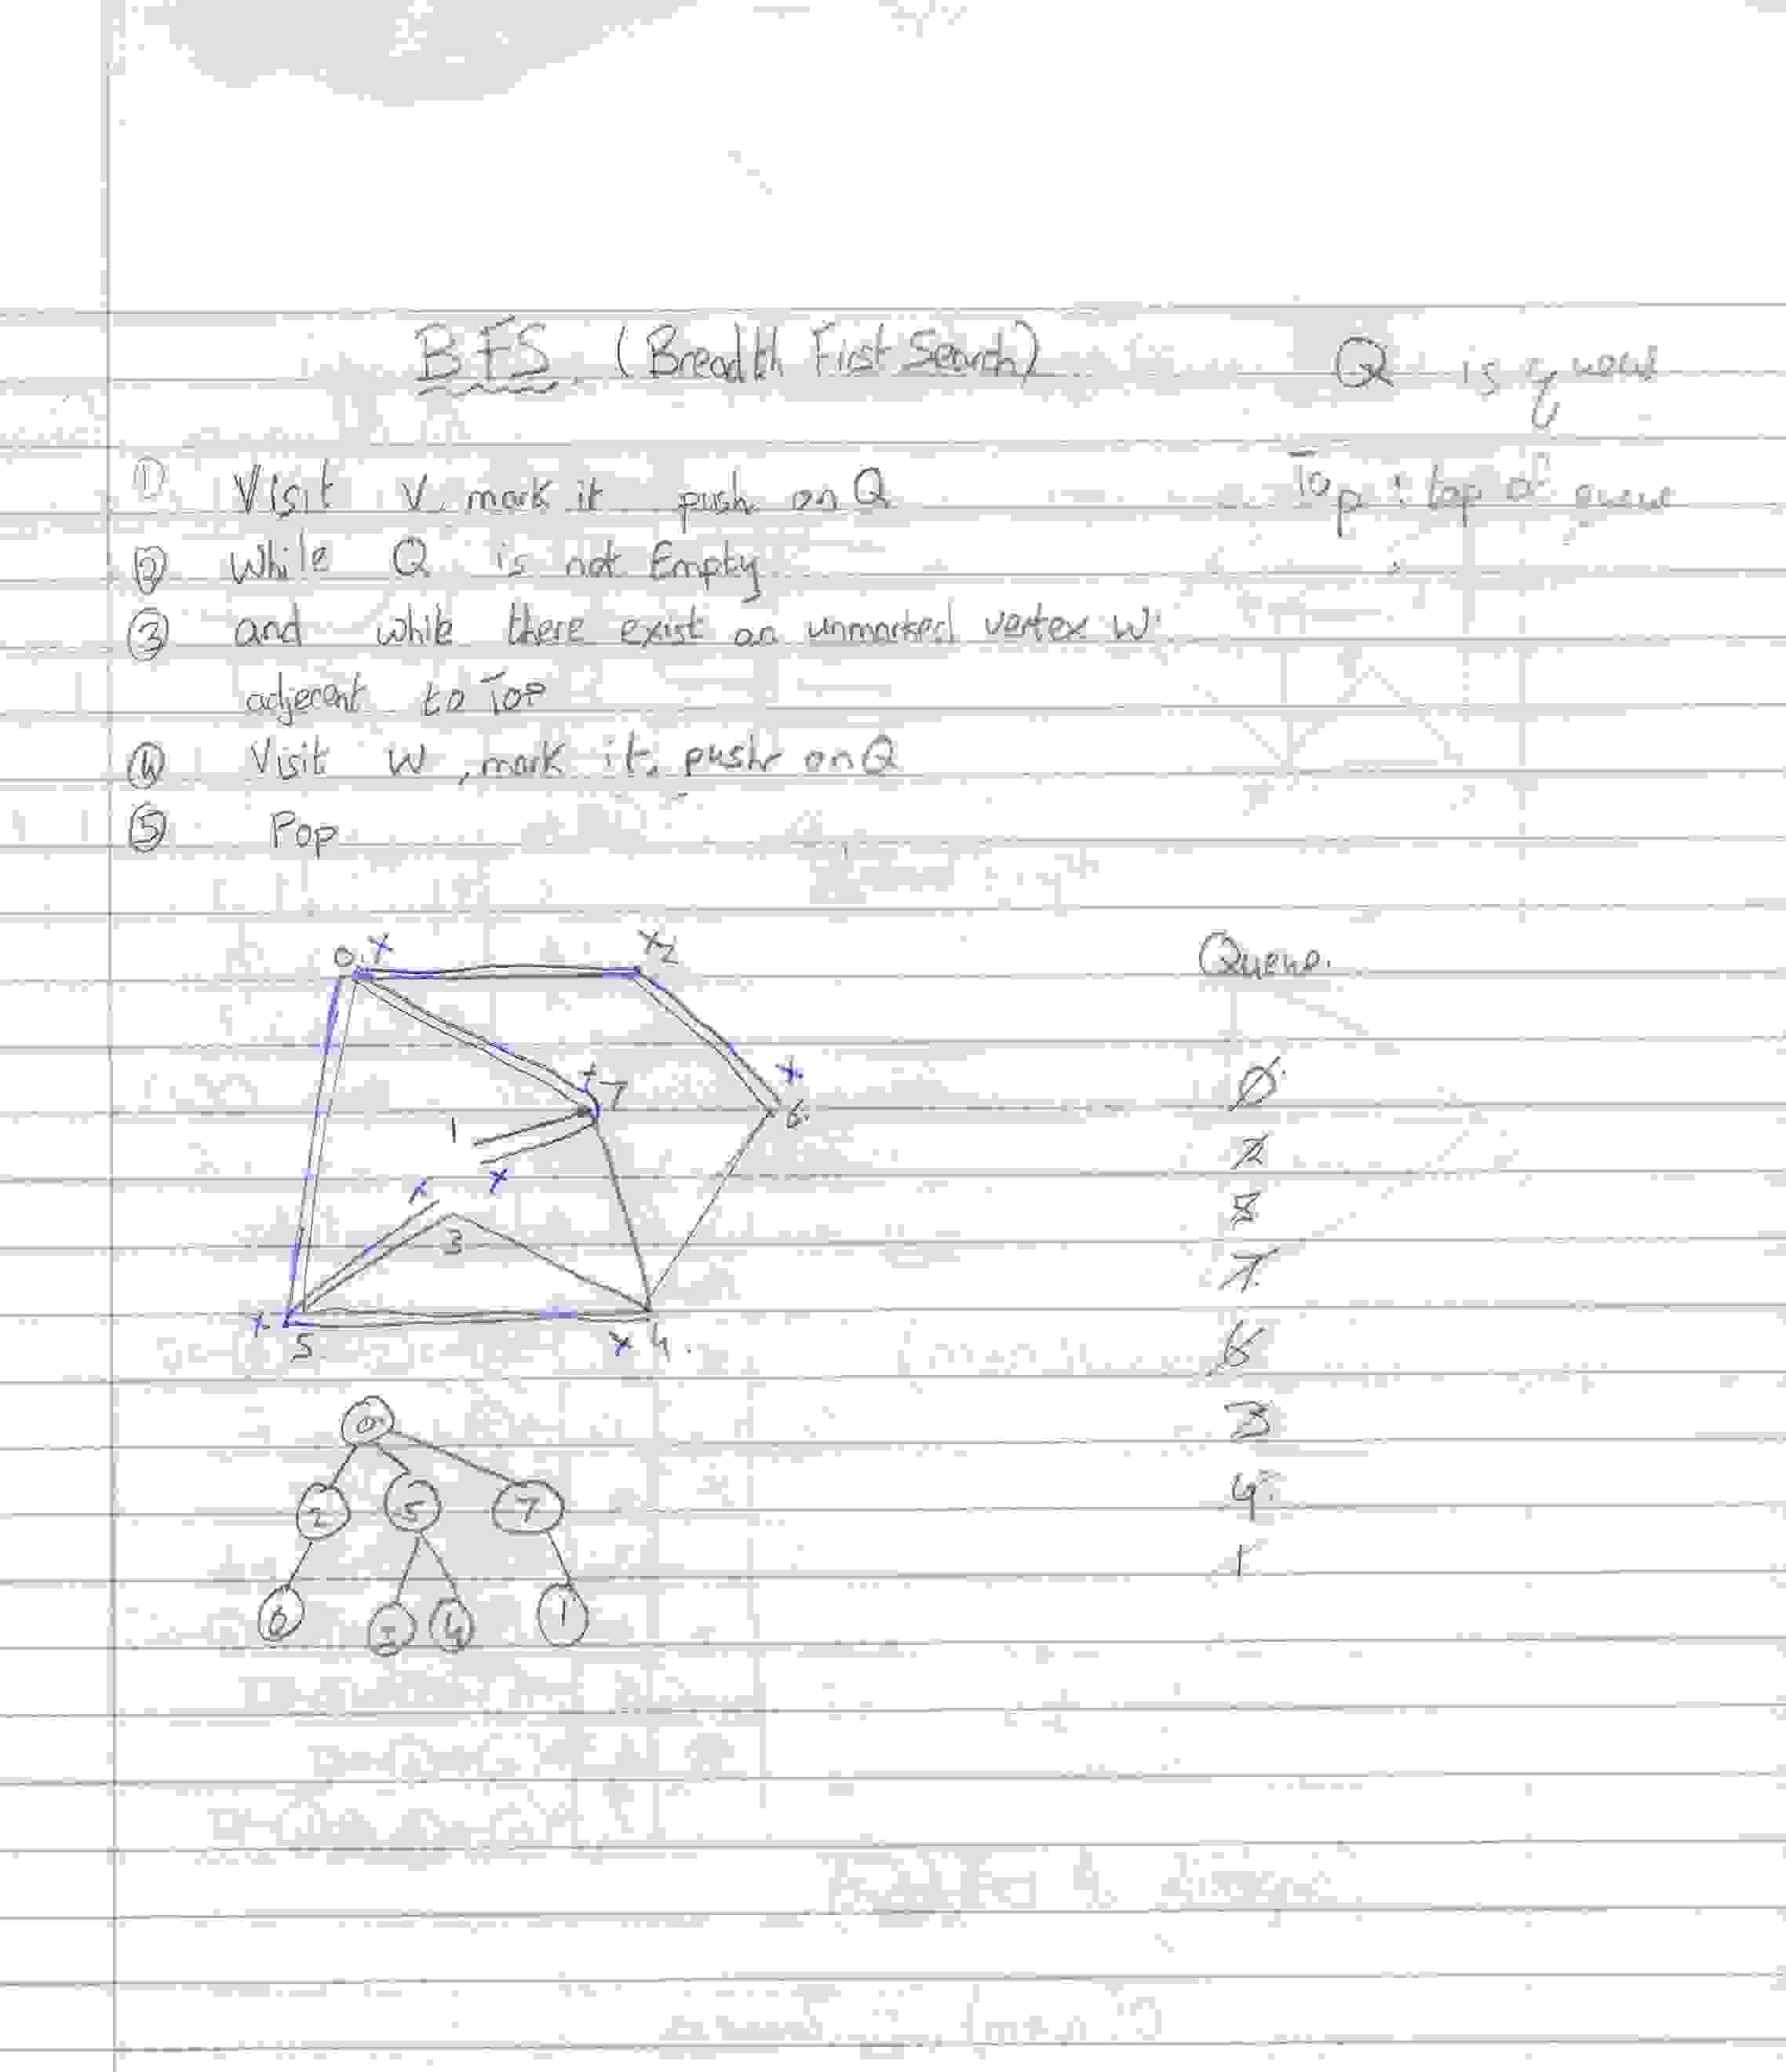 BFS (Breadth First Search)
Q is queue
① Visit V, mark it push on Q
Top : top of queue
② While Q is not Empty
③ and while there exist an unmarked vertex W
adjecent to Top
④ Visit W, mark it, push on Q
⑤ Pop
0 x
x 2
Queue.
x
x 7
6.
0
1
x
2
x
3
5
7
x
5
x 4.
6
3
0
4
2 5 7
1
6 3 4 1